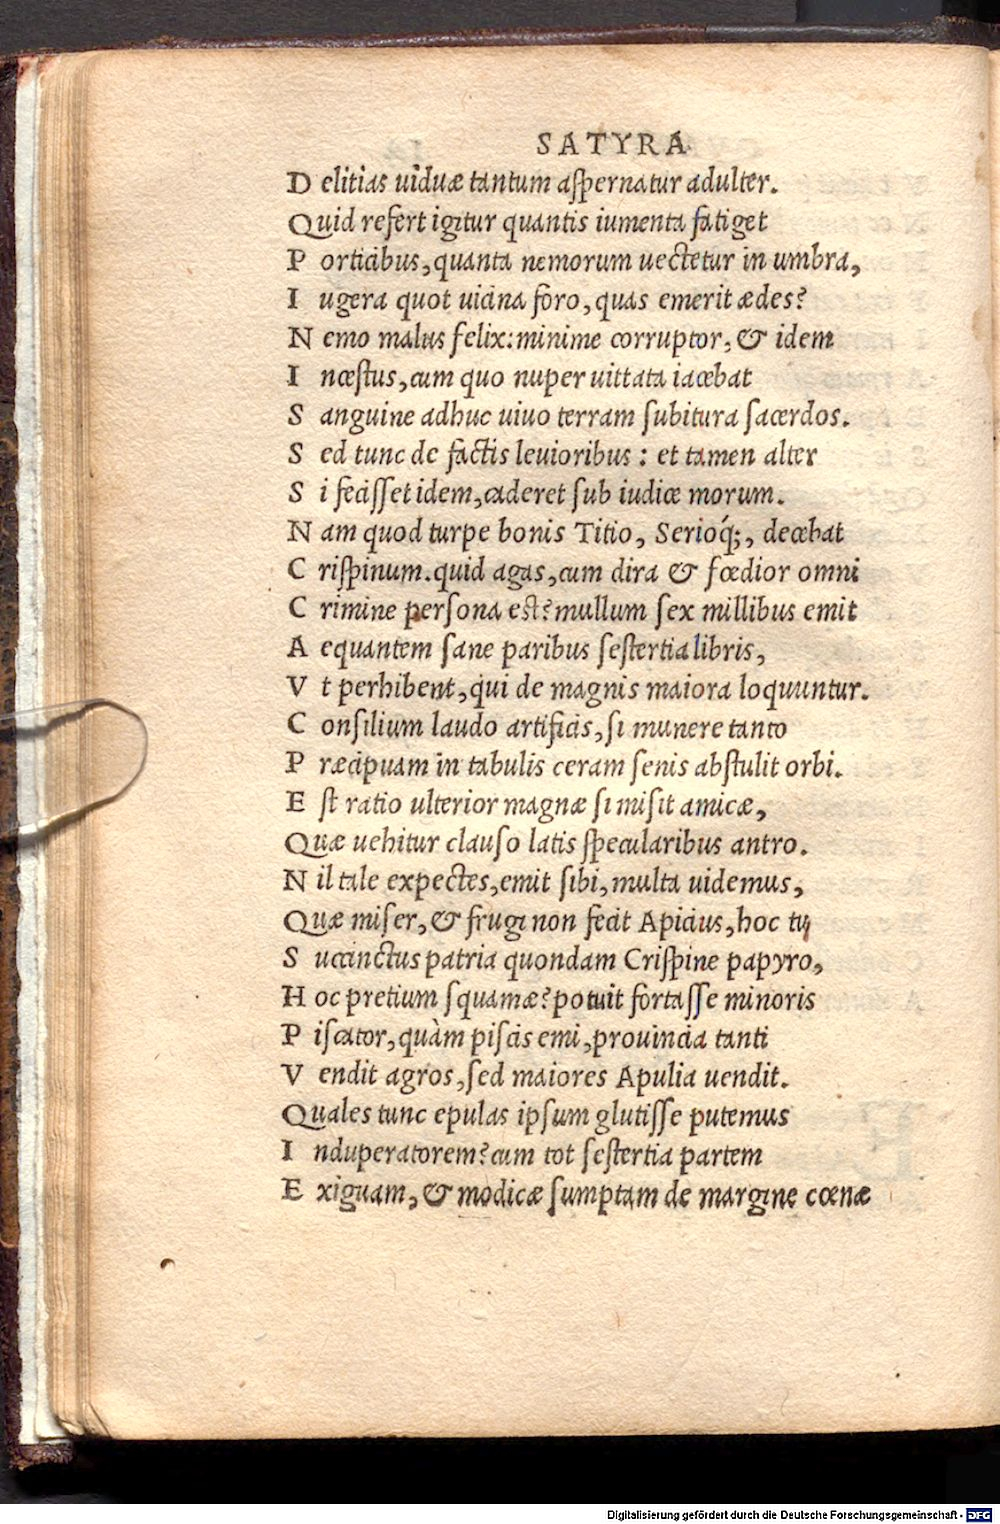 SATYRA
D elitias uiduæ tantum aſpernatur adulter.
Quid refert igitur quantis iumenta fatiget
P orticibus, quanta nemorum uectetur in umbra,
I ugera quot uicina foro, quas emerit ædes?
N emo malus felix: minime corruptor, & idem
I nceſtus, cum quo nuper uittata iacebat
S anguine adhuc uiuo terram ſubitura ſacerdos.
S ed tunc de factis leuioribus : et tamen alter
S i feciſſet idem, caderet ſub iudice morum.
N am quod turpe bonis Titio, Serioq́;, decebat
C riſpinum. quid agas, cum dira & fœdior omni
C rimine perſona eſt? mullum ſex millibus emit
A equantem ſane paribus ſeſtertia libris,
V t perhibent, qui de magnis maiora loquuntur.
C onſilium laudo artificis, ſi munere tanto
P ræcipuam in tabulis ceram ſenis abſtulit orbi.
E ſt ratio ulterior magnæ ſi miſit amicæ,
Quæ uehitur clauſo latis ſpecularibus antro.
N il tale expectes, emit ſibi, multa uidemus,
Quæ miſer, & frugi non fecit Apicius, hoc tu
S uccinctus patria quondam Criſpine papyro,
H oc pretium ſquamæ? potuit fortaſſe minoris
P iſcator, quàm piſcis emi, prouincia tanti
V endit agros, ſed maiores Apulia uendit.
Quales tunc epulas ipſum glutiſſe putemus
I nduperatorem? cum tot ſeſtertia partem
E xiguam, & modicæ ſumptam de margine cœnæ
Digitalisierung gefördert durch die Deutsche Forschungsgemeinschaft - DFG